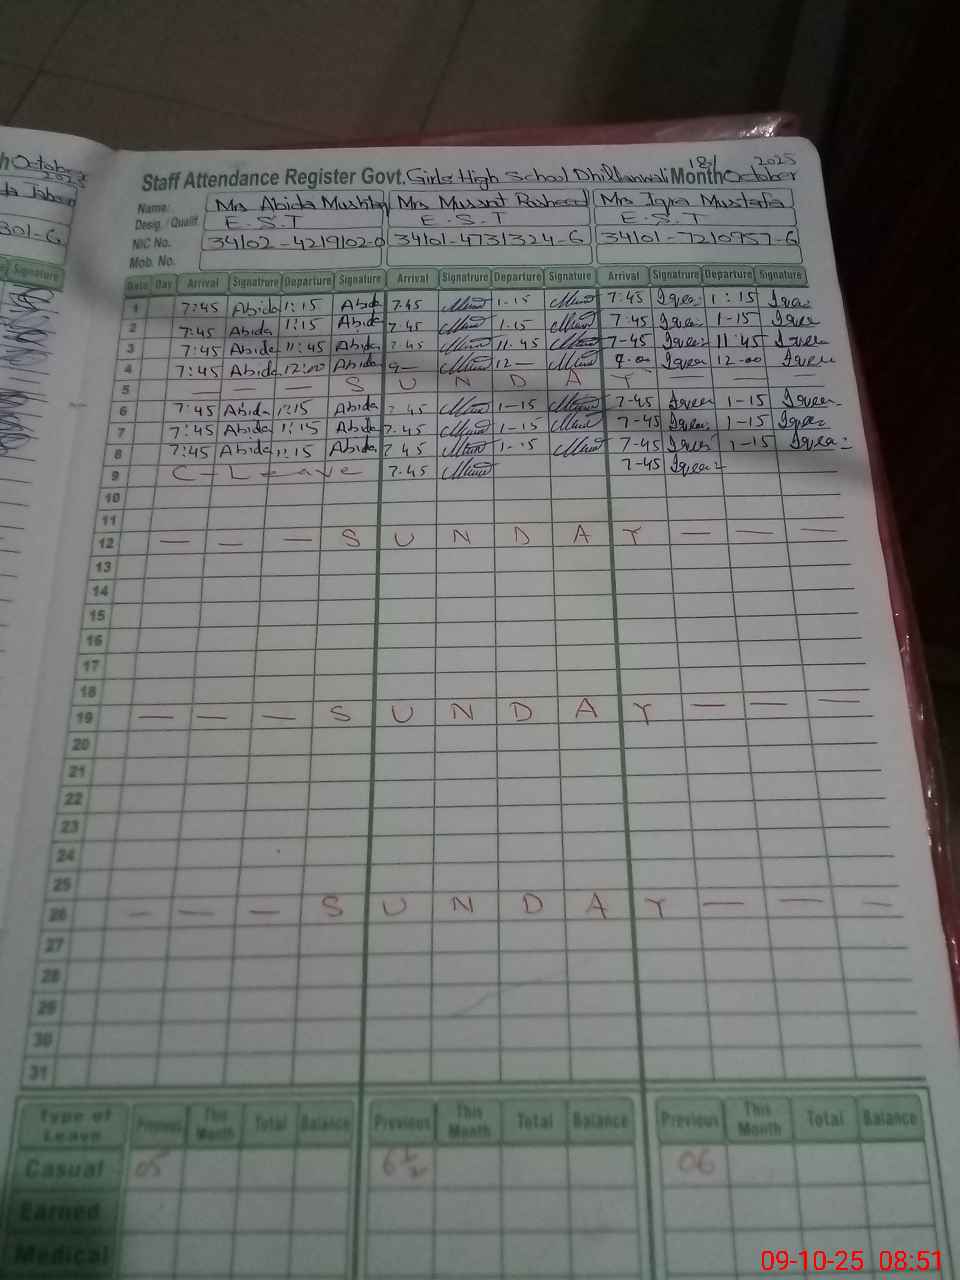 October
2025
301-6
Signature
18/ 2025
Staff Attendance Register Govt. Girls High School Dhillanwali Month October
Name: Mrs Abida Mushtaq Mrs Mussrat Rasheed Mrs Iqra Mustafa
Desig. / Qualif. E.S.T E.S.T E.S.T
NIC No. 34102-4219102-0 34101-4731324-6 34101-7210757-6
Mob. No.
Date Day Arrival Signatrure Departure Signature Arrival Signatrure Departure Signature Arrival Signatrure Departure Signature
1 7:45 Abida 1:15 Abida 7:45 1-15 7:45 Iqra 1:15 Iqra
2 7:45 Abida 1:15 Abida 7:45 1-15 7:45 Iqra 1-15 Iqra
3 7:45 Abida 11:45 Abida 7:45 11-45 7-45 Iqra 11:45 Iqra
4 7:45 Abida 12:00 Abida 9- 12- 9-00 Iqra 12-00 Iqra
5 — — — S U N D A Y — — —
6 7:45 Abida 1:15 Abida 7:45 1-15 7-45 Iqra 1-15 Iqra
7 7:45 Abida 1:15 Abida 7:45 1-15 7-45 Iqra 1-15 Iqra
8 7:45 Abida 1:15 Abida 7:45 1-15 7-45 Iqra 1-15 Iqra
9 C-Leave 7:45 7-45 Iqra
10
11
12 — — — S U N D A Y — — —
13
14
15
16
17
18
19 — — — S U N D A Y — — —
20
21
22
23
24
25
26 — — — S U N D A Y — — —
27
28
29
30
31
Type of Leave Previous This Month Total Balance Previous This Month Total Balance Previous This Month Total Balance
Casual 05 6½ 06
Earned
Medical
09-10-25 08:51